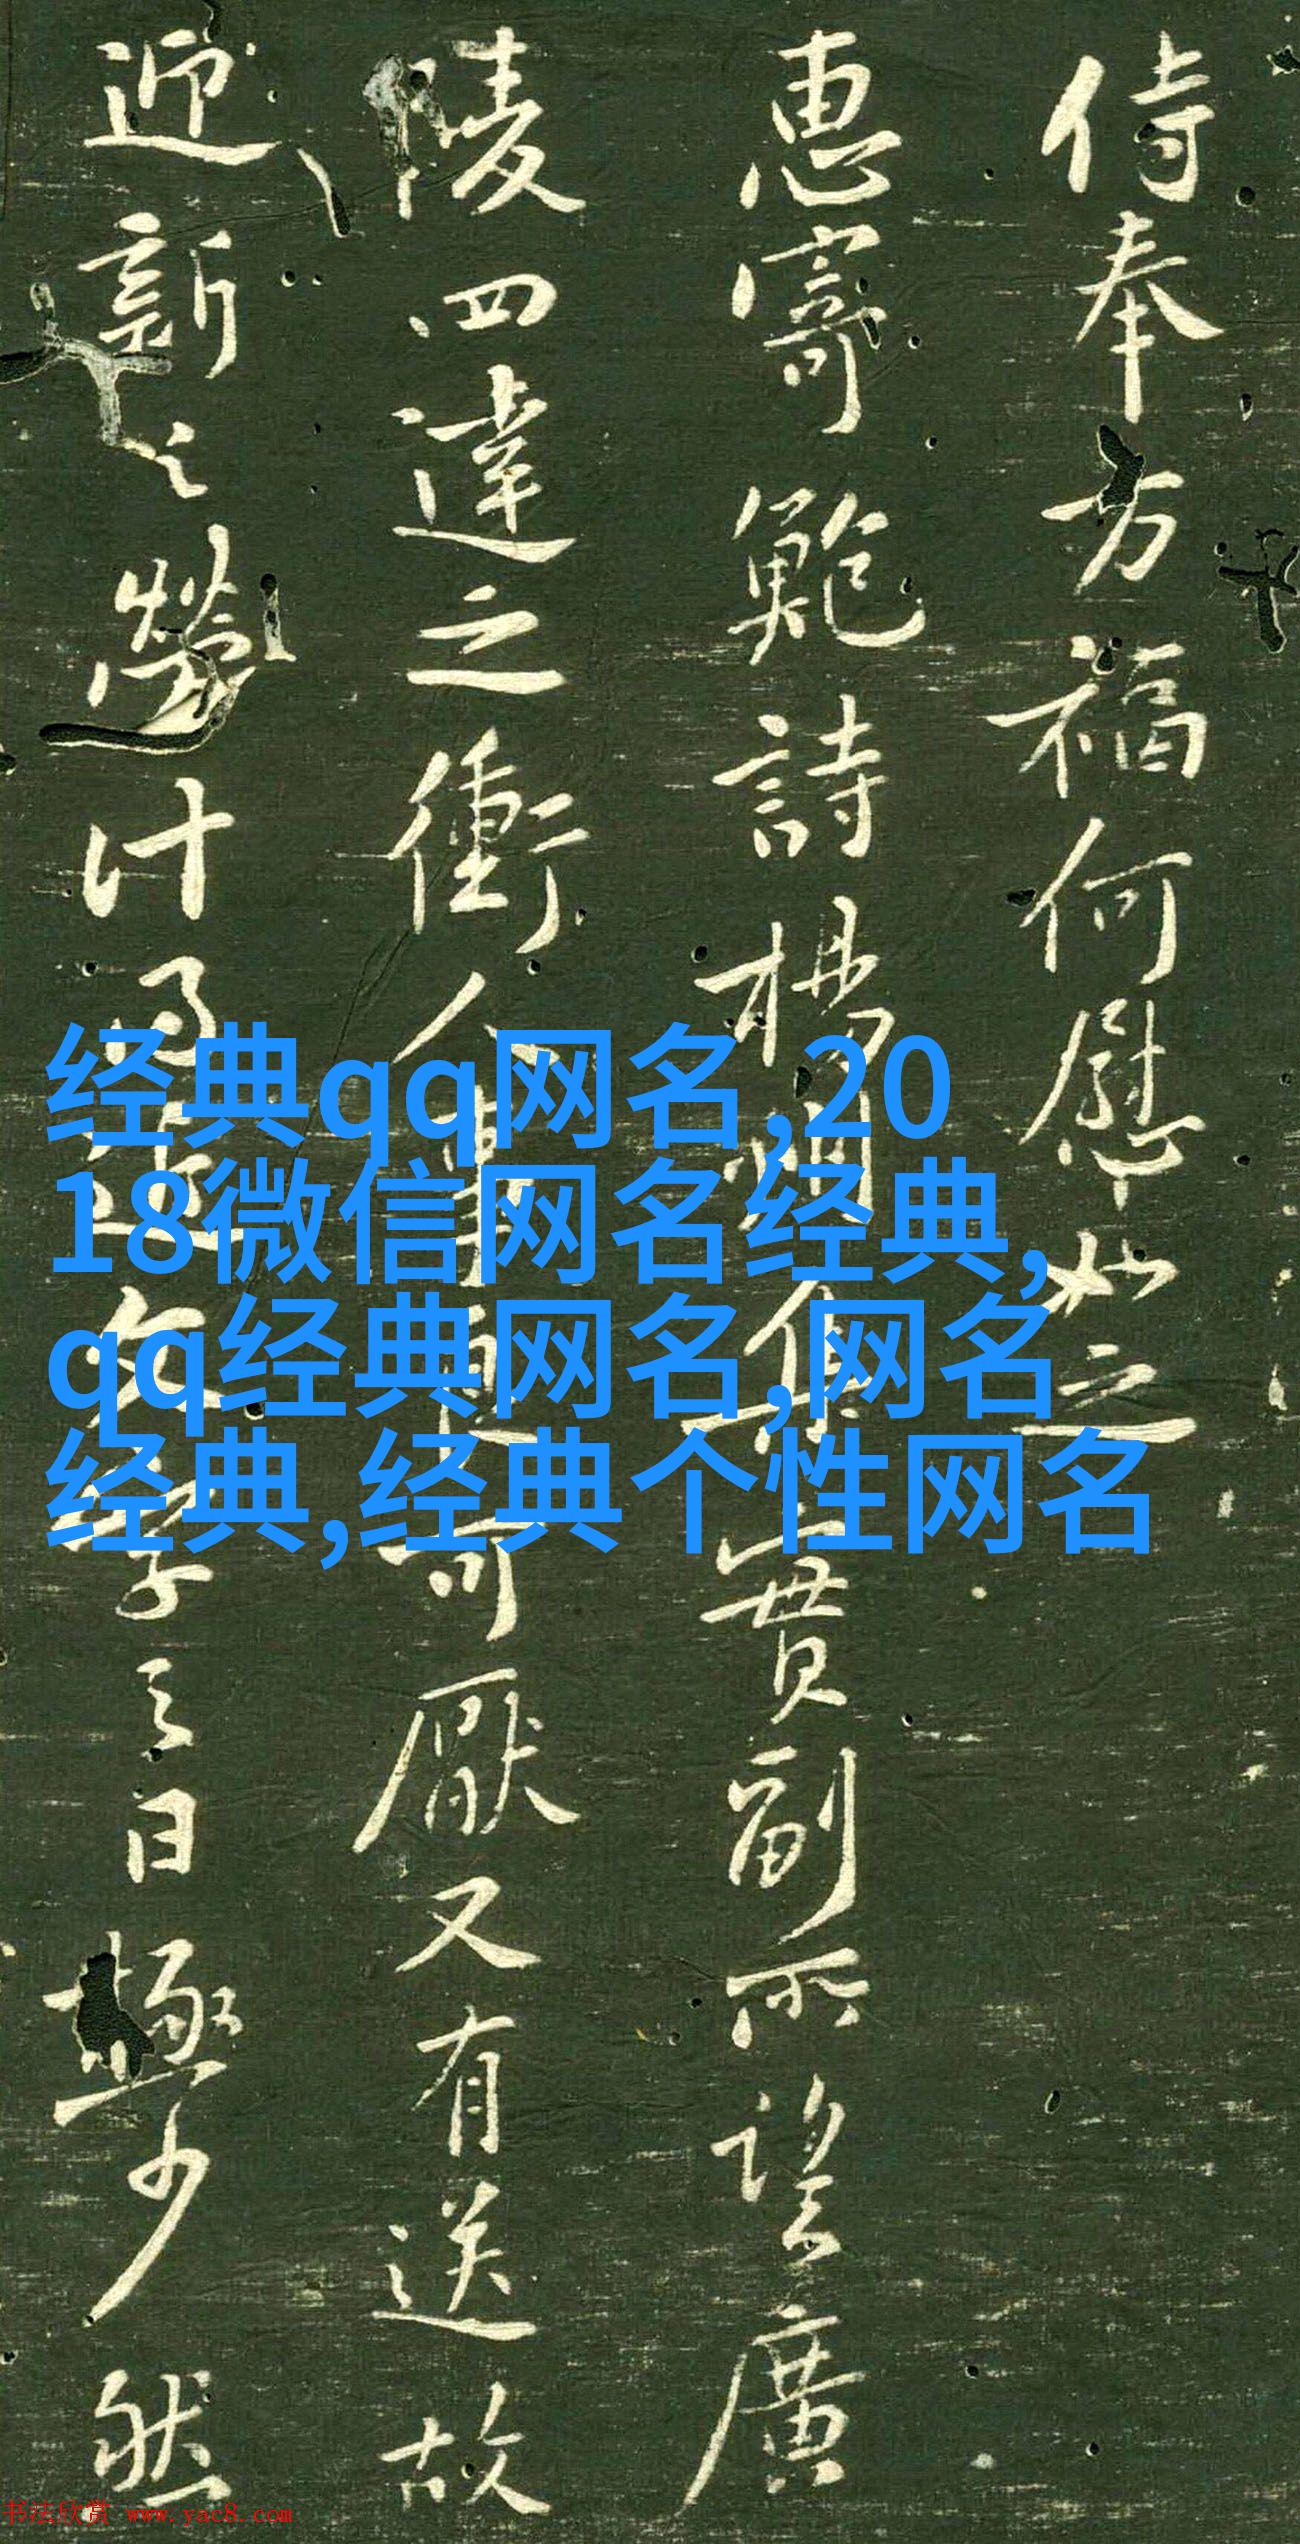 侍奉万福何慰如之
惠寄鲍詩楊
實副所望廣
陵四達之衝人事良可厭又有送故
迎新之勞計
日極少然
经典qq网名,20
18微信网名经典,
qq经典网名,网名
经典,经典个性网名
书法欣赏 www.yac8.com